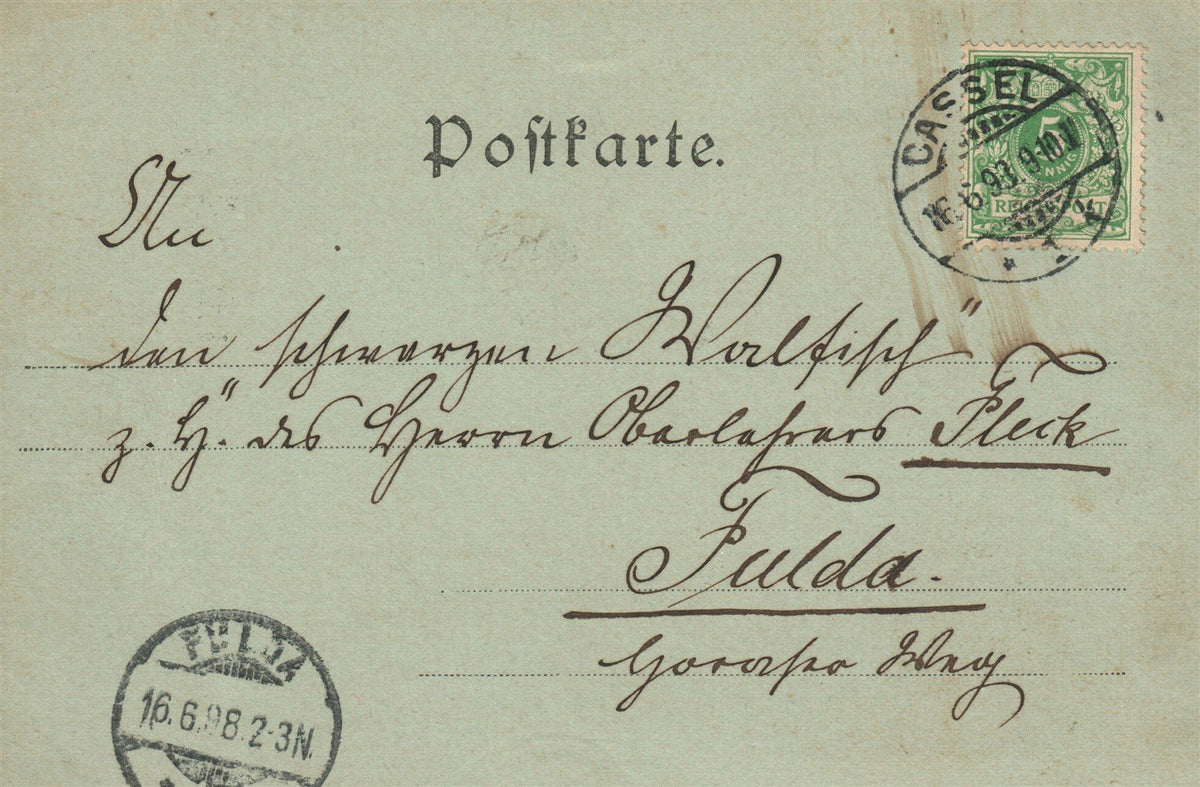 Postkarte.
CASSEL
16.6.98.9-10V
1
5
PFENNIG
REICHSPOST
An
den schwarzen Walfisch"
z. H". des Herrn Oberlehrers Fleck
Fulda.
Horaser Weg
FULDA
16.6.98.2-3N.